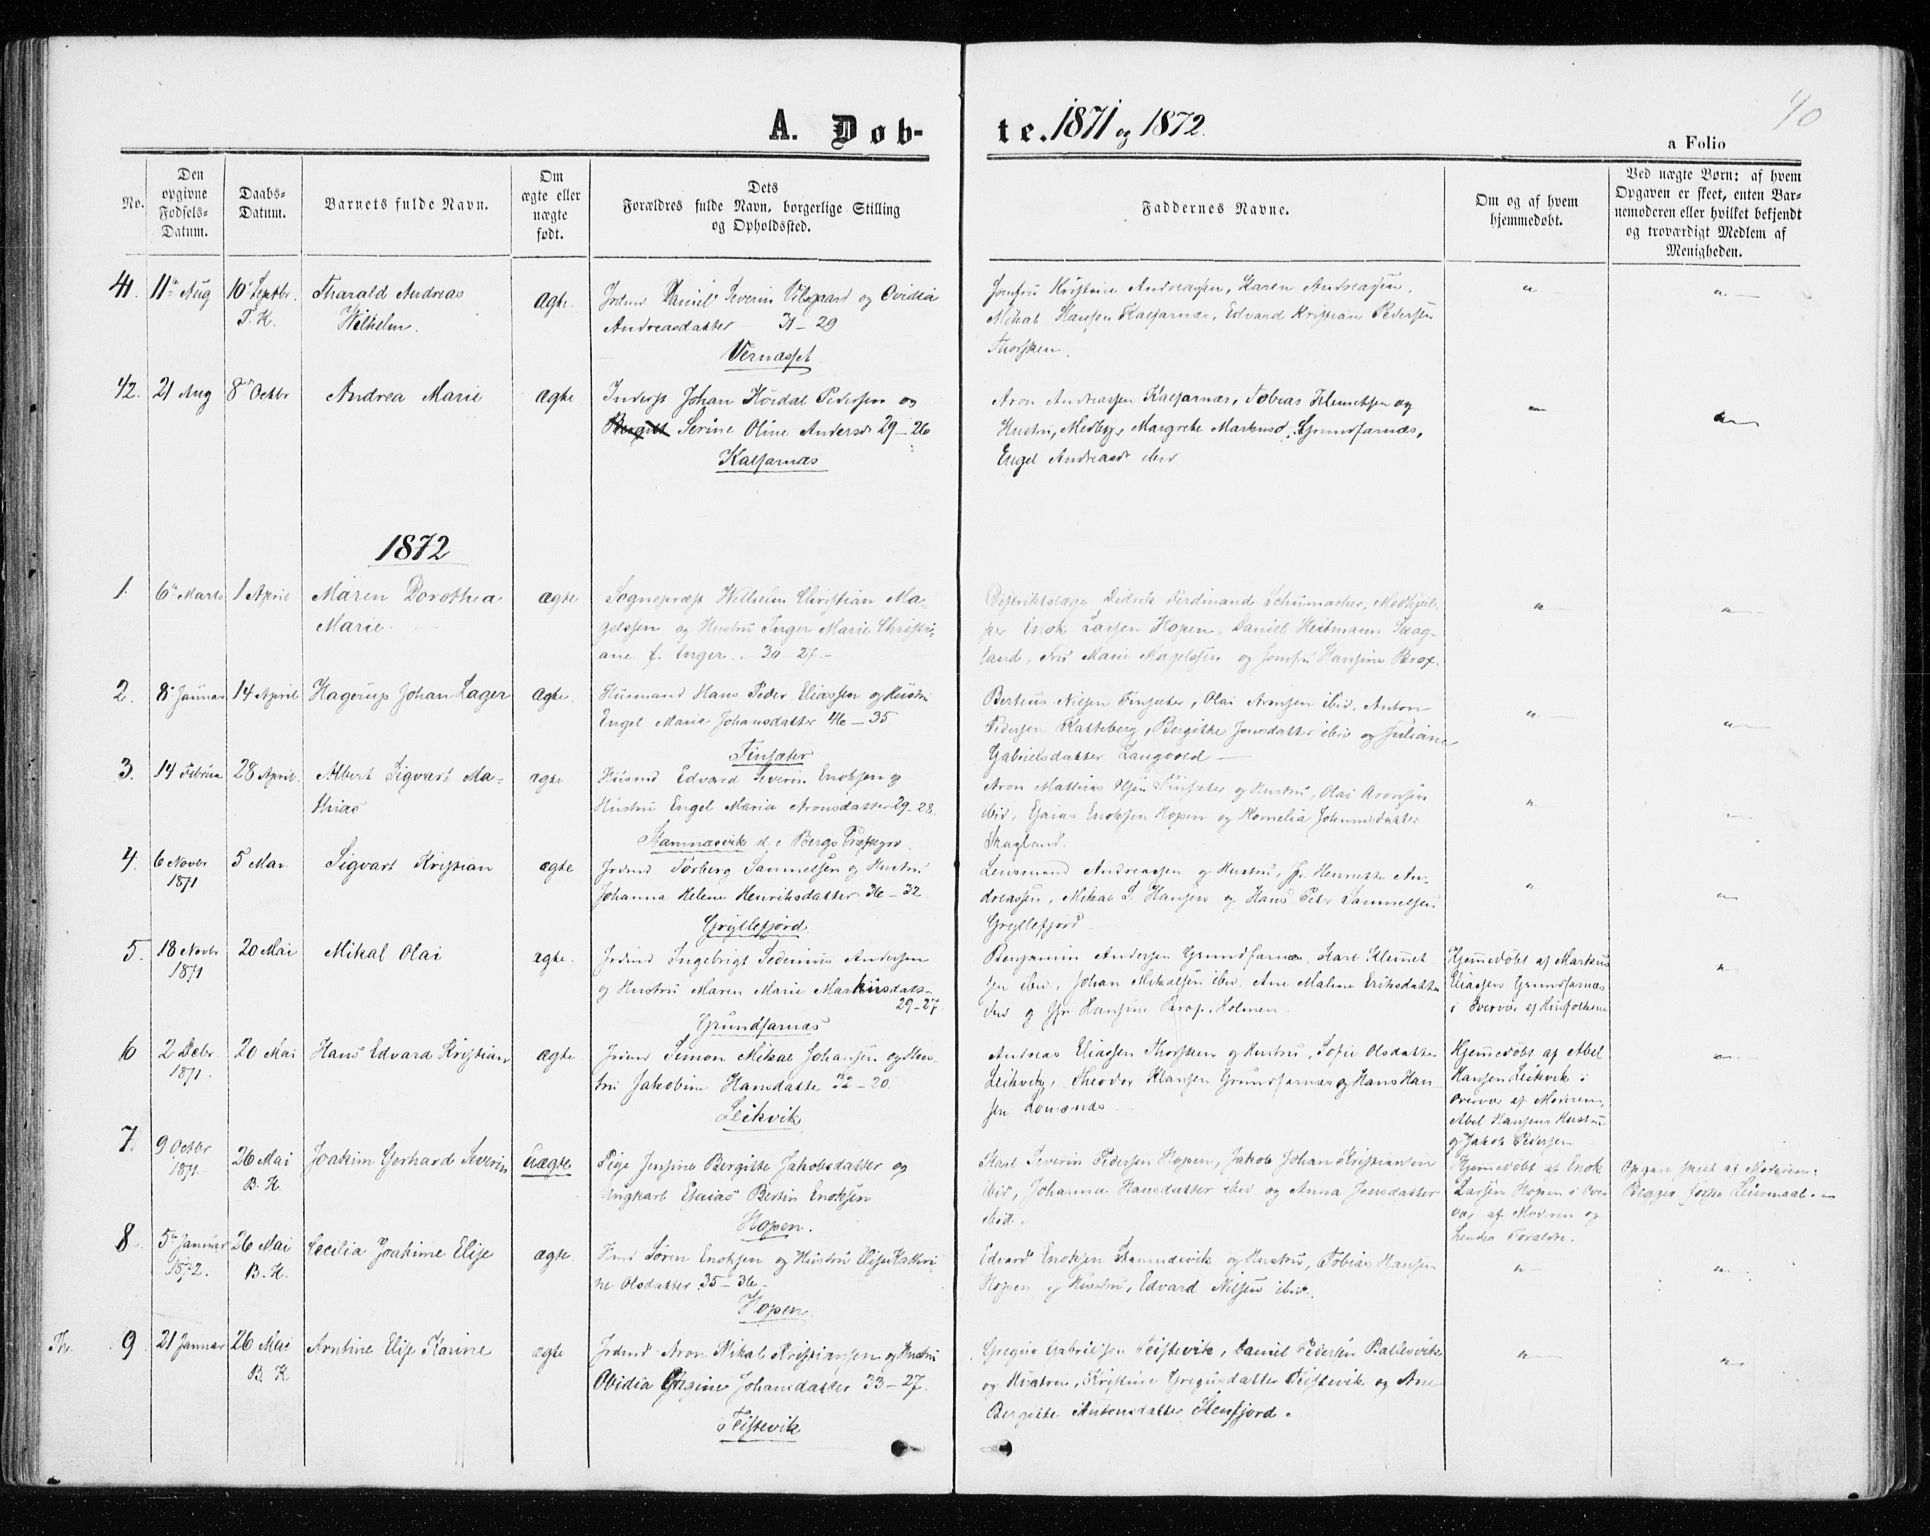 40
A. Døb-
te. 1871 og 1872.
a Folio
No.
Den
opgivne
Fødsels-
Datum.
Daabs-
Datum.
Barnets fulde Navn.
Om
ægte eller
uægte
født.
Dets
Forældres fulde Navn, borgerlige Stilling
og Opholdssted.
Faddernes Navne.
Om og af hvem
hjemmedøbt.
Ved uægte Børn: af hvem
Opgaven er skeet, enten Bar-
nemoderen eller hvilket bekjendt
og troværdigt Medlem af
Menigheden.
41. 11te Aug 10 Septbr. Tharald Andreas ægte.
T. K. Wilhelm.
Daniel Severin og Ovidia
Andreasdatter 31-29
Vernæsset
Jomfru Kristine Andreasen, Karen Andreasen,
Mikal Hansen Kalfarnæs, Edvard Kristian Pedersen
Thorsken.
42. 21 Aug 8de Octbr Andrea Marie ægte
Inderst Johan Hoidal Pedersen og
Serine Oline Andersd. 29-26
Kalfarnæs
Aron Andreassen Kalfarnæs, Tobias Klemetsen og
Hustru, Medby, Margrete Markusd. Grundfarnæs,
Engel Andreasd. ibid
1872
1. 6te Marts 1 April Maren Dorothea ægte
Marie.
Sognepræst Wilhelm Christian Ma-
gelssen og Hustru Inger Marie Christi-
ane f. Unger. 30-27.-
Distriktslæge Didrik Ferdinand Schumacher, Medhjel-
per Enok Larsen Hopen, Daniel Heitmann Skag-
land, Fru Marie Magelssen og Jomfru Hansine Brox.
2. 8de Januar 14 April Hagerup Johan Lager ægte.
Husmand Hans Peder Eliassen og Hustru
Engel Marie Johansdatter 46-35.
Finsæter
Berteus Nilsen Finsæter, Olai Aronsen ibid, Anton
Pedersen Katteberg, Bergitte Jonsdatter ibid og Juliane
Gabrielsdatter Langvold
3. 14 Februa 28 April. Albert Sigvart Ma- ægte
thias
Husmd Edvard Severin Enoksen og
Hustru Engel Maria Aronsdatter 29-28.
Stamnæsvik d.e Bergs Præstegn.
Aron Mathias Olsen Finsæter og Hustru, Olai Aronsen
ibid, Esaias Enoksen Hopen og Kornelia Johannisdatter
Skagland.
4. 6 Novbr 5 Mai Sigvart Kristian ægte
1871
Jrdmd Torberg Sammelsen og Hustru
Johanna Helene Henriksdatter 36-32.
Gryllefjord
Lensmand Andreassen og Hustru, Jfr Henriette An-
dreassen, Mikal S. Hansen og Hans Peter Sammelsen
Gryllefjord
5. 18 Novbr 20 Mai Mikal Olai ægte.
1871
Jrdmd Ingebrigt Sedenius Andersen
og Hustru Maren Marie Markusdatt-
29-27.
Grundfarnæs
Benjamin Andersen Grundfarnæs, Karl Klemet-
sen ibid, Johan Mikalsen ibid. Ane Malene Eriksdatter
ibid og Jfr Hansine Brox, Holmen.
Hjemmedøbt af Markus
Eliassen Grundfarnæs
i Overvær af
6 2 Debr 20 Mai Hans Edvard Kristian ægte
1871.
Jrdmd Simon Mikal Johansen og Hus-
tru Jakobine Hansdatte 32-20.
Leikvik
Andreas Eliassen Thorsken og Hustru, Sofie Olsdatter
Leikvik, Theodor Klausen Grundfarnæs og Hans Han-
sen
Hjemmedøbt af Abel
Hansen Leikvik i
Overvær af Moderen,
Abel Hansens Hustru
og Jakob Pedersen
7. 9 Octbr 26 Mai Joakim Gerhard Severin uægte
1871. B. K.
Pige Jensine Bergitte Jakobsdatter og
Ungkarl Esaias Bertin Enoksen
Hopen.
Karl Severin Pedersen Hopen, Jakob Johan Kristiansen
ibid, Johanna Hansdatter ibid og Anna Jensdatter
ibid.
Hjemmedøbt af Enok
Larsen Hopen i Over-
vær af Moderen og
hendes Forældre.
Opgav. skeet af Moderen:
Begges første Leiermaal.
8 5te Januar 26 Mai Cecilia Joakime Elise ægte
1872. B. K.
Søren Enoksen og Hustru Elise Kathri-
ne Olsdatter 35-36-
Hopen
Edvard Enoksen Stamnæsvik og Hustru, Tobias Hansen
Hopen og Hustru, Edvard Nilsen ibid.
9 21 Januar 26 Mai Arntine Elise Karine ægte
B. K
Jrdmd Aron Mikal Kristiansen og Hustru
Ovidia Gregine Johansdatter 33-27.
Teistevik
Gregus Gabrielsen Teistevik, Daniel Pedersen Ballesvik
og Hustru, Kristine Gregusdatter Teistevik og Ane
Bergitte Antonsdatter Stenfjord.